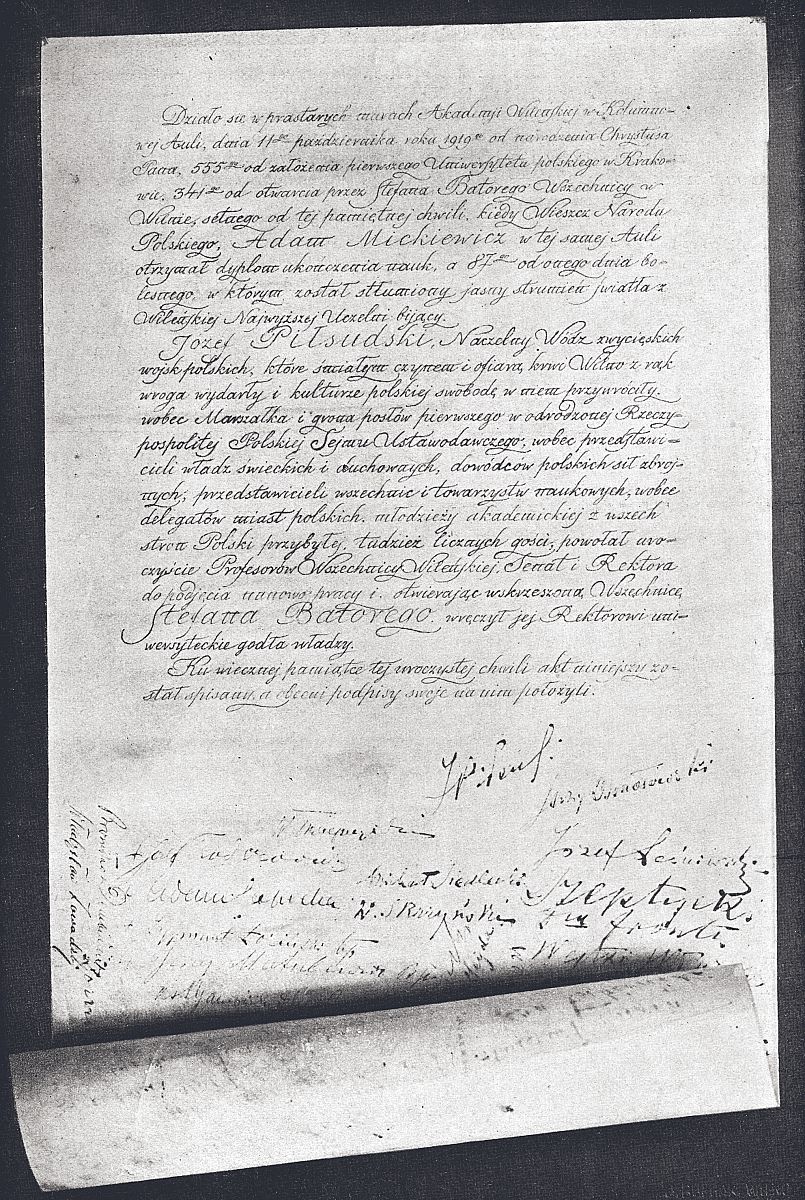 Działo się w prastarych murach Akademji Wileńskiej w Kolumno-
wej Auli, dnia 11go października roku 1919go od narodzenia Chrystusa
Pana, 555go od założenia pierwszego Uniwersytetu polskiego w Krako-
wie, 341go od otwarcia przez Stefana Batorego Wszechnicy w
Wilnie, setnego od tej pamiętnej chwili, kiedy Wieszcz Narodu
Polskiego, Adam Mickiewicz w tej samej Auli
otrzymał dyplom ukończenia nauk, a 87go od onego dnia bo-
lesnego, w którym został stłumiony jasny strumień światła z
Wileńskiej Najwyższej Uczelni bijący.
Józef Piłsudski, Naczelny Wódz zwycięskich
wojsk polskich, które śmiałym czynem i ofiarą krwi Wilno z rąk
wroga wydarły i kulturze polskiej swobodę w niem przywróciły,
wobec Marszałka i grona posłów pierwszego w odrodzonej Rzeczy-
pospolitej Polskiej Sejmu Ustawodawczego, wobec przedstawi-
cieli władz świeckich i duchownych, dowódców polskich sił zbroj-
nych, przedstawicieli wszechnic i towarzystw naukowych, wobec
delegatów miast polskich, młodzieży akademickiej z wszech
stron Polski przybyłej, tudzież licznych gości, powołał uro-
czyście Profesorów Wszechnicy Wileńskiej, Senat i Rektora
do podjęcia nanowo pracy i, otwierając wskrzeszoną Wszechnicę
Stefana Batorego, wręczył jej Rektorowi uni-
wersyteckie godła władzy.
Ku wiecznej pamiątce tej uroczystej chwili akt niniejszy zo-
stał spisany, a obecni podpisy swoje na nim położyli.
J Piłsuds
Jerzy Osmołowski
Józef Leśniewski
Michał Siedlecki
Szeptycki
W. Skrzyński
Władysław Zawadzki